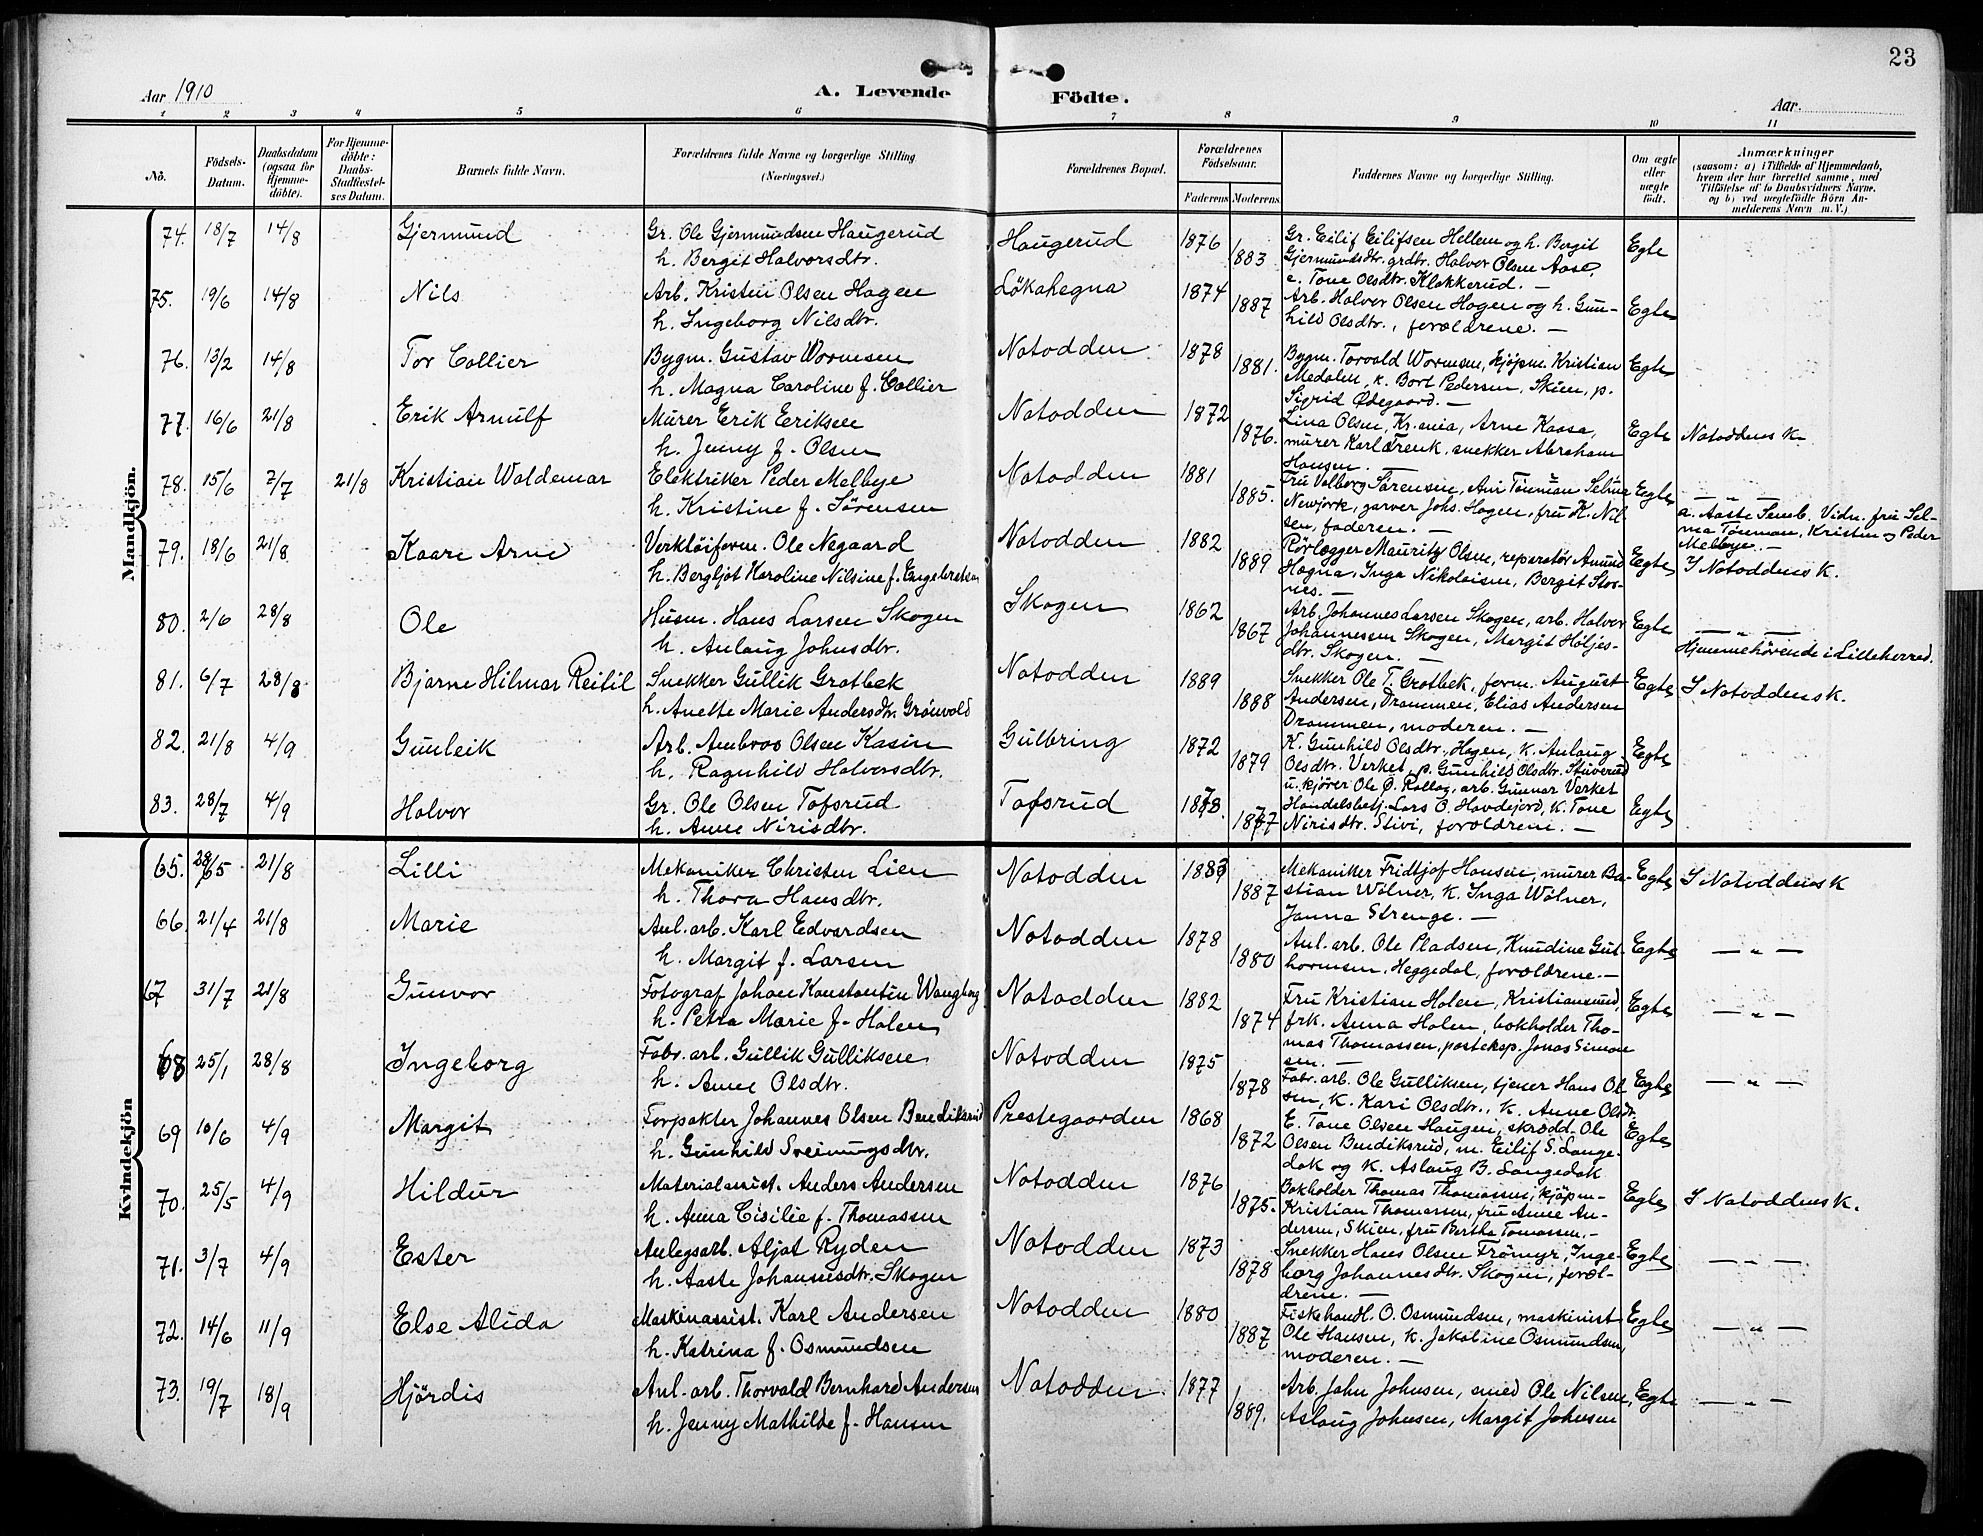 23
Aar 1910
A. Levende
Födte.
Aar.
1 2 3 4 5 6 7 8 9 10 11
No.
Födsels-Datum.
Daabsdatum (ogsaa for Hjemme-döbte).
For Hjemme-döbte: Daabs-Stadfæstel-ses Datum.
Barnets fulde Navn.
Forældrenes fulde Navne og borgerlige Stilling (Næringsvei.)
Forældrenes Bopæl.
Forældrenes Födselsaar.
Faderens Moderens
Faddernes Navne og borgerlige Stilling.
Om ægte eller uægte födt.
Anmærkninger
(saasom: a) i Tilfælde af Hjemmedaab,
hvem der har forrettet samme, med
Tilföielse af to Daabsvidners Navne.
og b) ved uægtefödte Börn An-
melderens Navn m. V.)
Mandkjön.
74. 18/7 14/8 Gjermund
Gr. Ole Gjermundsen Haugerud
h. Bergit Halvorsdtr.
Haugerud 1876 1883
Gr. Eilif Eilifsen Hellem og h. Bergit
Gjermundsdtr. grdbr. Halvor Olsen Aase,
e. Tone Olsdtr. Klokkerud. —
Egte
75. 19/6 14/8 Nils
Arb. Kristen Olsen Hagen
h. Ingeborg Nilsdtr.
Lökahegna 1874 1887
Arb. Halvor Olsen Hagen og h. Gun-
hild Olsdtr., forældrene. —
Egte
76. 13/2 14/8 Tor Collier
Bygm. Gustav Wormsen
h. Magna Caroline f. Collier
Notodden 1878 1881.
Bygm. Torvald Wormsen, kjöpm. Kristian
Medalen, k. Bort Pedersen, Skien, p.
Sigrid Ødegaard. —
Egte
77. 16/6 21/8 Erik Arnulf
Murer Erik Eriksen
h. Jenny f. Olsen
Notodden 1872 1876.
Lina Olsen, Kr.ania, Arne Kaasa,
murer Karl Frenk, snekker Abraham
Hansen. —
Egte Notoddens K.
78. 15/6 7/7 21/8 Kristian Waldemar
Elektriker Peder Melbye
h. Kristine f. Sörensen
Notodden 1881 1885.
Fru Valborg Sörensen, Selma
Newjork, garver Johs. Hagen, fru K. Nil-
sen, faderen. —
Egte — „ —
a. Aaste Semb. Vidn. fru Sel-
ma Tönman, Kristen og Peder
Melbye. —
79. 18/6 21/8 Kaare Arne
Verktöiform. Ole Negaard
h. Bergljot Karoline Nilsine f. Engebretsen
Notodden 1882 1889
Rörlægger Mauritz Olsen, reparatör Amund
Hogna, Inga Nikolaisen, Bergit Stor-
nes. —
Egte I Notoddens K.
80. 2/6 28/8 Ole
Husm. Hans Larsen Skogen
h. Anlaug Johnsdtr.
Skogen 1862 1867
Arb. Johannes Larsen Skogen, arb. Halvor
Johannesen Skogen, Margit Höljes-
dtr. Skogen. —
Egte — „ —
Hjemmehörende i Lilleherred.
81. 6/7 28/8 Bjarne Hilmar Reitil
Snekker Gullik Grotbek
h. Anette Marie Andersdtr. Grönvold
Notodden 1889 1888
Snekker Ole T. Grotbek, form. August
Andersen, Drammen, Elias Andersen
Drammen, moderen. —
Egte I Notoddens K.
82. 21/8 4/9 Gunleik
Arb. Ambros Olsen Kasin
h. Ragnhild Halvorsdtr.
Gulbring 1872 1879
K. Gunhild Olsdtr. Hagen, k. Anlaug
Olsdtr. Verket, p. Gunhild Olsdtr. Stuverud
u. kjörer Ole Ø. Rollag, arb. Gunnar Verket
Egte
83. 28/7 4/9 Halvor
Gr. Ole Olsen Tofsrud
h. Anne Nirisdtr.
Tofsrud 1878. 1877
Handelsbetj. Lars O. Havdejord, k. Tone
Nirisdtr. Stivi, forældrene. —
Egte
Kvindekjön
65. 28/5 21/8 Lilli
Mekaniker Christen Lien
h. Thora Hansdtr.
Notodden 1883 1887
Mekaniker Fridtjof Hansen, murer Ba-
stian Wölner, k. Inga Wölner,
Janna Strenge. —
Egte I Notoddens K
66. 21/4 21/8 Marie
Anl. arb. Karl Edvardsen
h. Margit f. Larsen
Notodden 1878 1880
Anl. arb. Ole Pladsen, Knudine Gut-
hormsen, Heggedal, forældrene. —
Egte — „ —
67 31/7 21/8 Gunvor
Fotograf Johan Konstantin Wangberg
h. Petra Marie f. Holen
Notodden 1882 1874
Fru Kristian Holen, Kristiansund,
frk. Anna Holen, bokholder Tho-
mas Thomassen, posteksp. Jonas Simon
sen. —
Egte — „ —
68 25/1 28/8 Ingeborg
Fabr. arb. Gullik Gulliksen
h. Anne Olsdtr.
Notodden 1875 1878
Fabr. arb. Ole Gulliksen, tjener Hans Ol
sen, k. Kari Olsdtr., k. Anne Olsdtr.
Egte — „ —
69 10/6 4/9 Margit
Forpakter Johannes Olsen Bendiksrud
h. Gunhild Sveinungsdtr.
Prestegaarden 1868 1872
E. Tone Olsen Haugen, skrædd. Ole
Olsen Bendiksrud, m. Eilif S. Lange-
dak og k. Aslaug B. Langedak
Egte
70. 25/5 4/9 Hildur
Materialassist. Anders Andersen
h. Anna Cisilie f. Thomassen
Notodden 1876 1875.
Bokholder Thomas Thomassen, kjöpm.
Kristian Thomassen, fru Anne An-
dersen, Skien, fru Bertha Tomassen. —
Egte I Notoddens K.
71. 3/7 4/9 Ester
Anlegsarb. Aljot Ryden
h. Aaste Johannesdtr. Skogen
Notodden 1873 1878
Snekker Hans Olsen Frömyr, Inge-
borg Johannesdtr. Skogen, foræl-
drene. —
Egte — „ —
72. 14/6 11/9 Else Alida
Maskinassist. Karl Andersen
h. Katrina f. Osmundsen
Notodden 1880 1887
Fiskehandl. O. Osmundsen, maskinist
Ole Hansen, k. Jakoline Osmundsen,
moderen. —
Egte — „ —
73. 19/7 18/9 Hjördis
Anl. arb. Thorvald Bernhard Andersen
h. Jenny Mathilde f. Hansen
Notodden 1877 1889.
Arb. John Johnsen, smed Ole Nilsen,
Aslaug Johnsen, Margit Johnsen
Egte — „ —